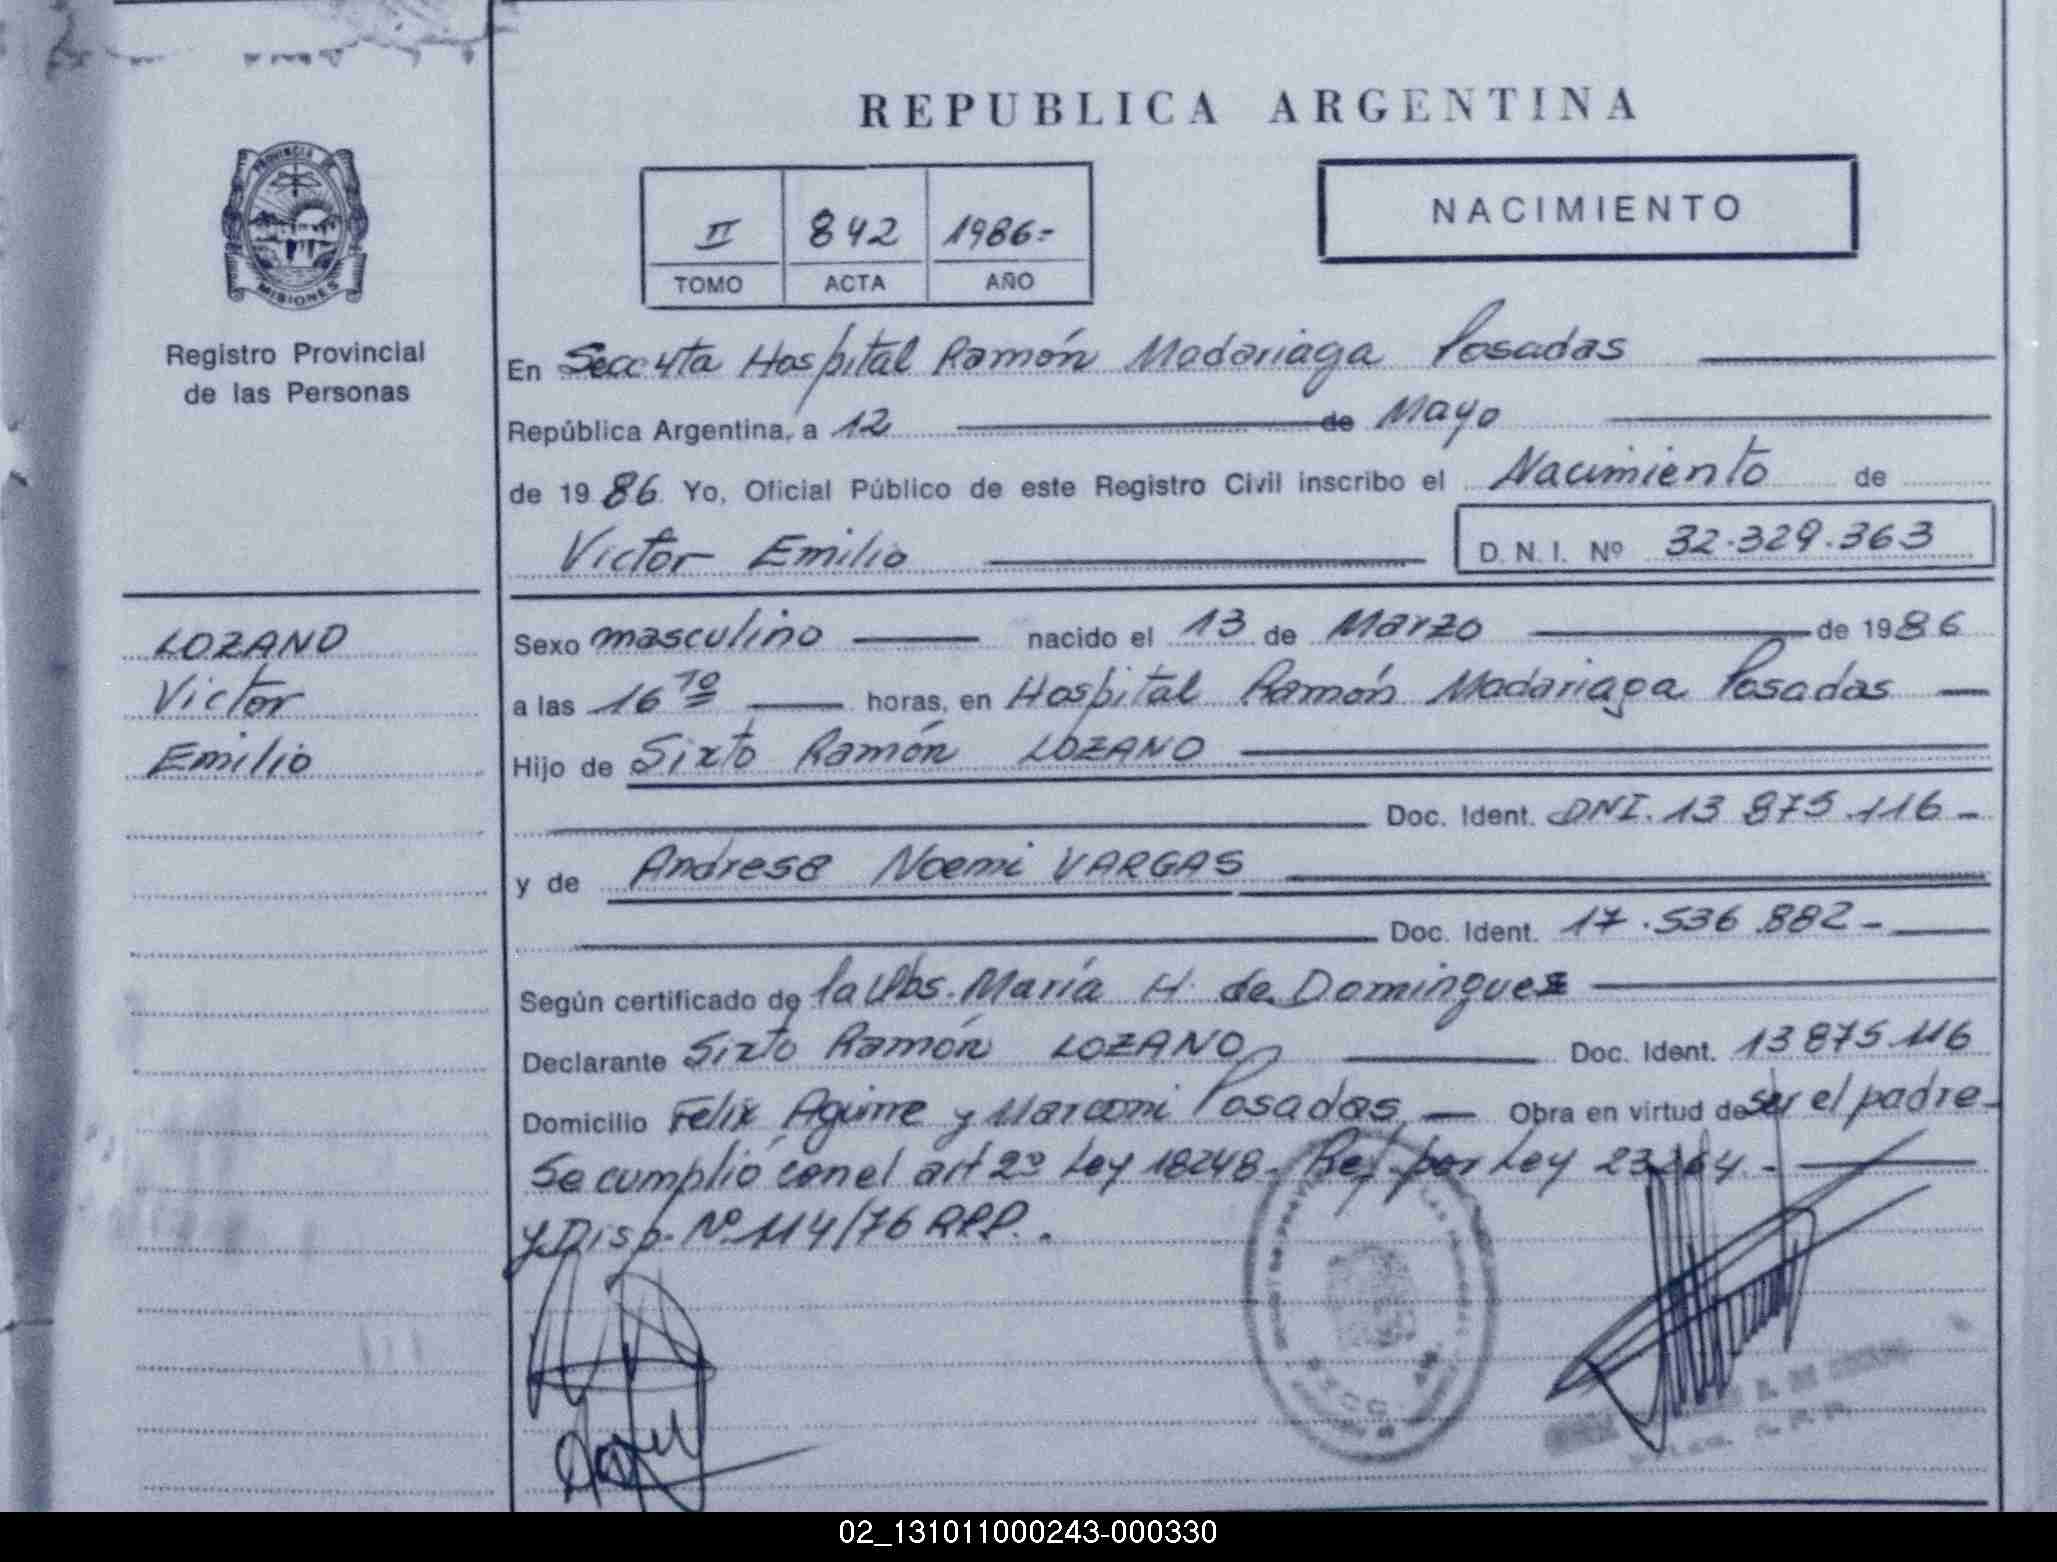 REPUBLICA ARGENTINA
PROVINCIA DE
MISIONES
Registro Provincial
de las Personas
II 842 1986-
TOMO ACTA AÑO
NACIMIENTO
En Secc 4ta Hospital Ramón Madariaga Posadas
República Argentina, a 12 de Mayo
de 1986 Yo, Oficial Público de este Registro Civil inscribo el Nacimiento de
Victor Emilio D. N. I. Nº 32.329.363
LOZANO
Victor
Emilio
Sexo masculino nacido el 13 de Marzo de 1986
a las 16 10 horas, en Hospital Ramón Madariaga Posadas
Hijo de Sixto Ramón LOZANO
Doc. Ident. DNI. 13 875.116-
y de Andresa Noemi VARGAS
Doc. Ident. 17.536.882-
Según certificado de la Obs. María H. de Dominguez
Declarante Sixto Ramón LOZANO Doc. Ident. 13 875.116
Domicilio Felix Aguirre y Marconi Posadas Obra en virtud de ser el padre
Se cumplió con el art 2º Ley 18248. Ref. por Ley 23.264.-
y Disp. Nº 114/76 RPP.
02_131011000243-000330